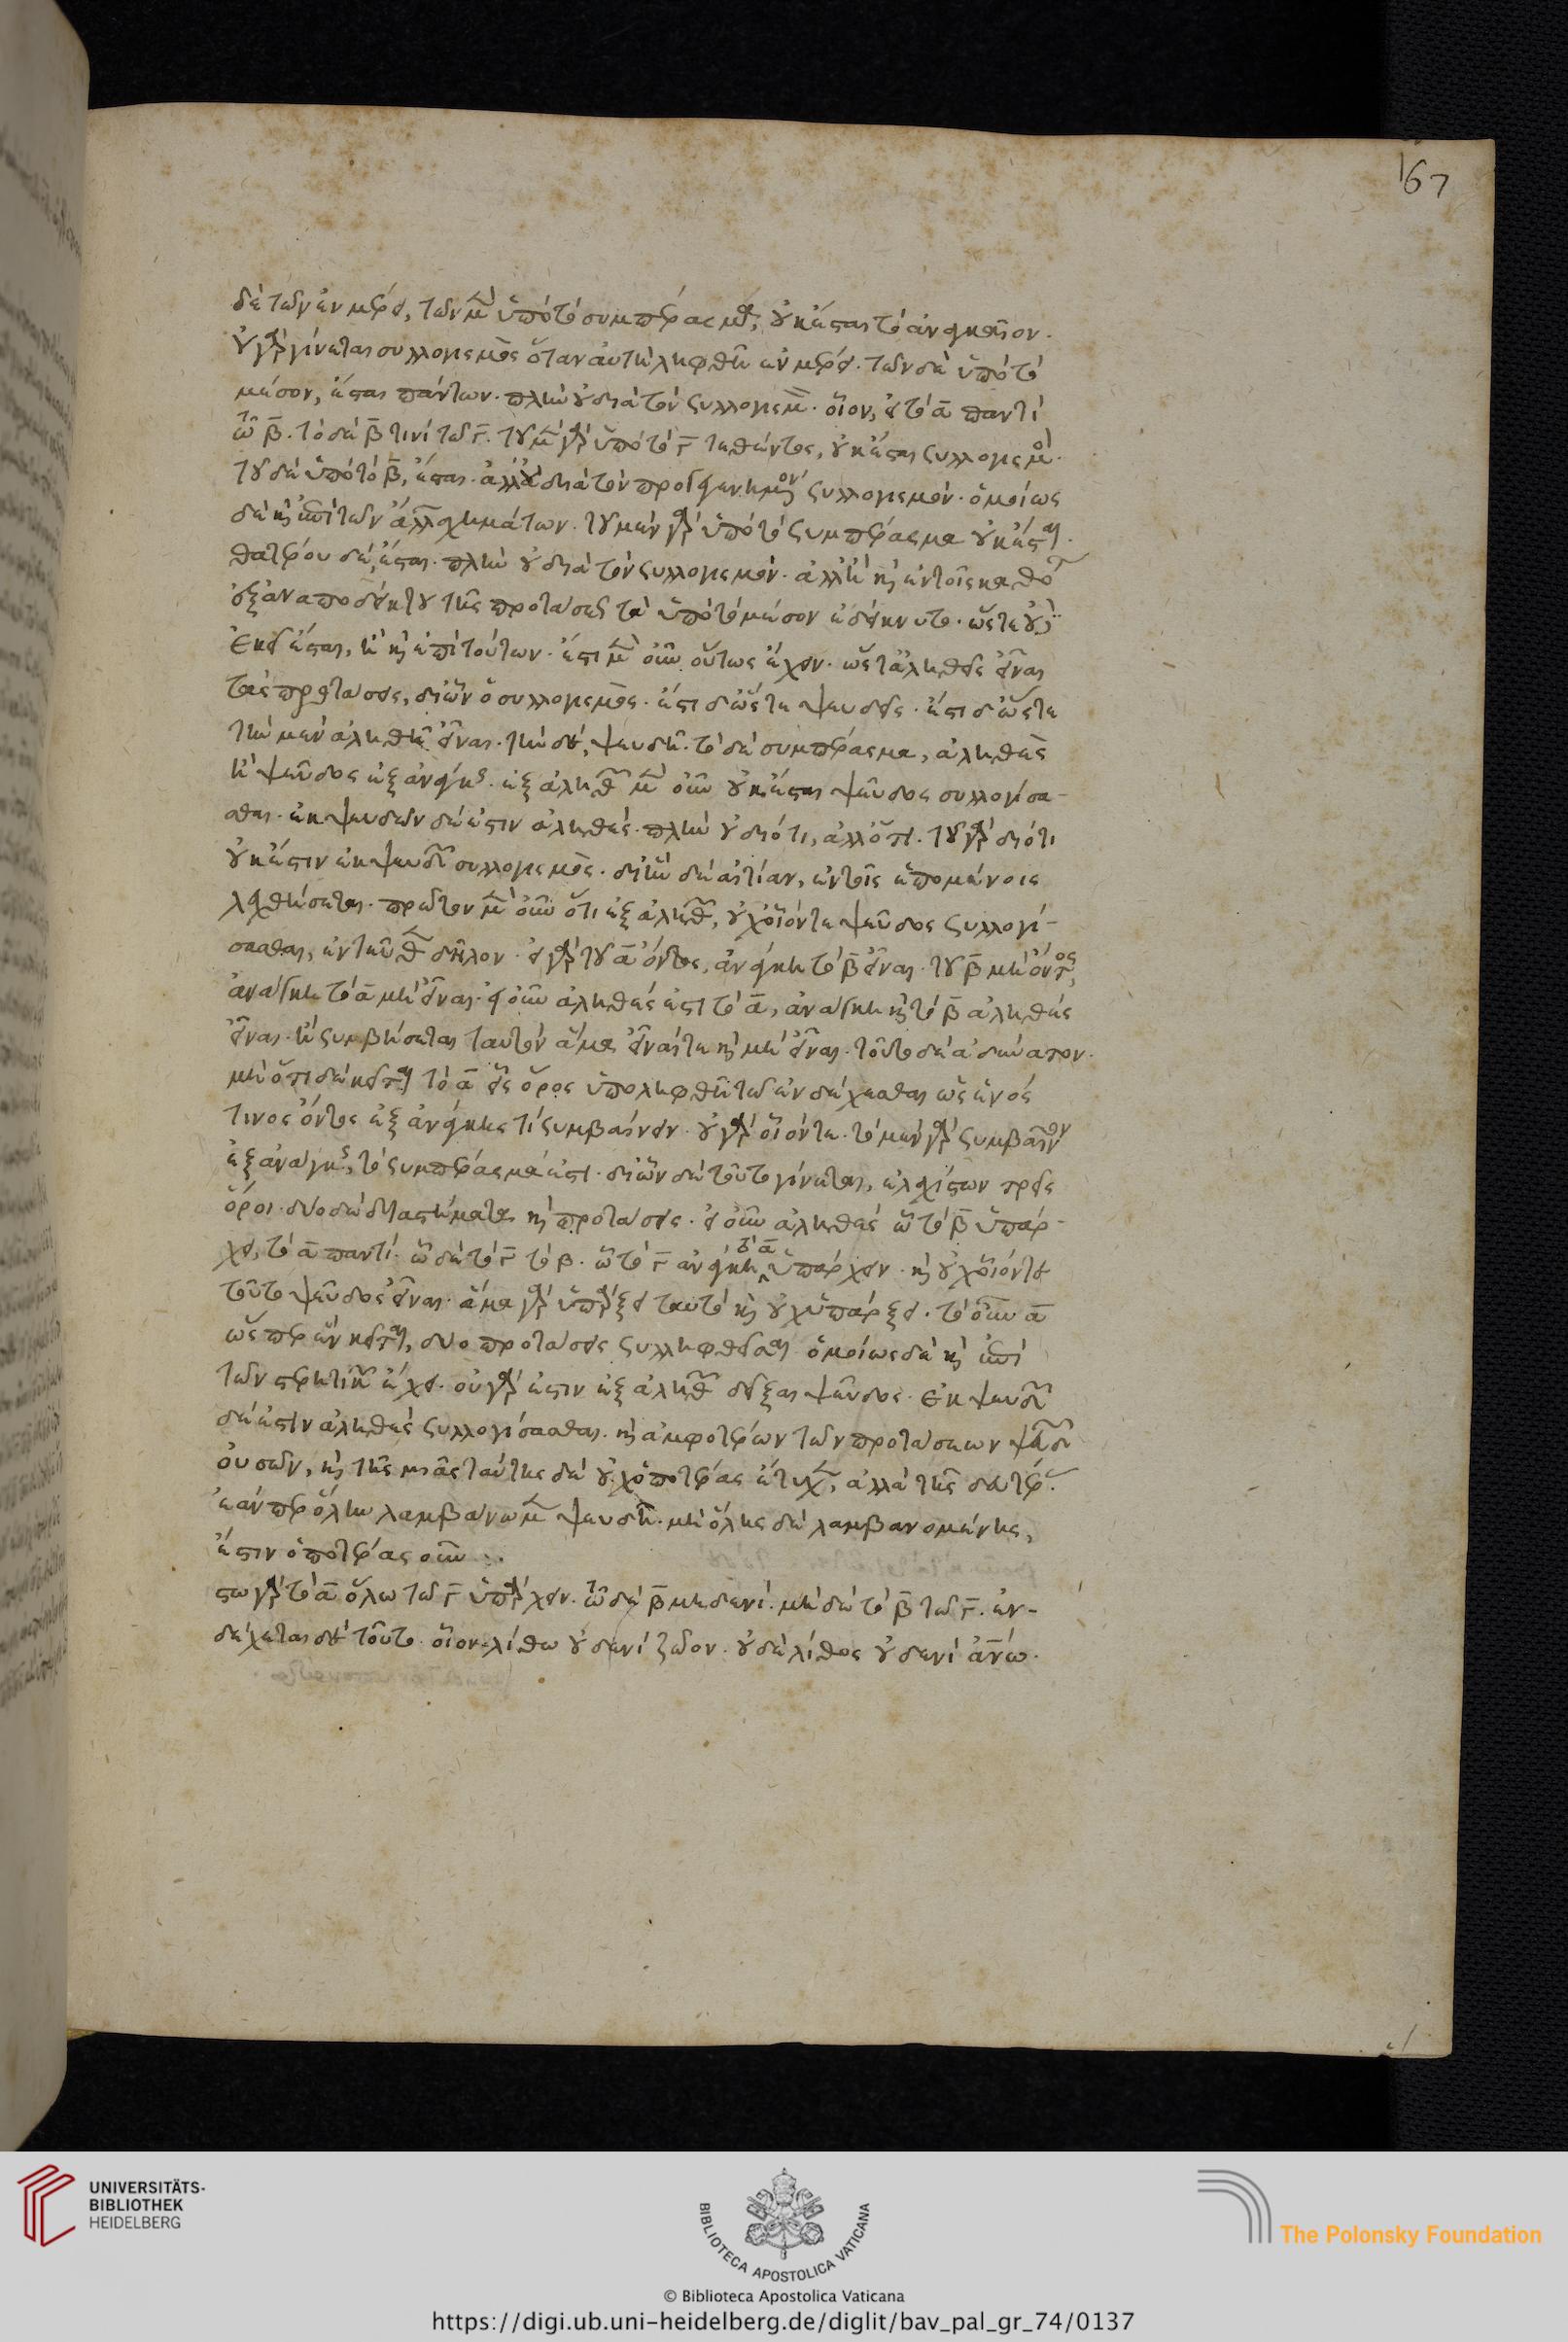 67
δὲ τῶν ἐν μέρει, τῶν μὲν ὑπὸ τὸ συμπέρασμα, οὐκ ἔσται τὸ ἀναγκαῖον.
οὐ γὰρ γίνεται συλλογισμὸς ὅταν αὕτη ληφθῆ ἐν μέρει. τῶν δὲ ὑπὸ τὸ
μέσον, ἔσται πάντων. πλὴν οὐ διὰ τὸν συλλογισμόν. οἷον, εἰ τὸ α παντὶ
τῶ β. τὸ δὲ β τινὶ τῶ γ. τοῦ μὲν γὰρ ὑπὸ τὸ γ τεθέντος, οὐκ ἔσται συλλογισμός.
τοῦ δὲ ὑπὸ τὸ β, ἔσται. ἀλλ' οὐ διὰ τὸν προγεγενημένον συλλογισμόν. ὁμοίως
δὲ καὶ ἐπὶ τῶν ἄλλων σχημάτων. τοῦ μὲν γὰρ ὑπὸ τὸ συμπέρασμα οὐκ ἔσται.
θατέρου δὲ, ἔσται. πλὴν οὐ διὰ τὸν συλλογισμόν. ἀλλ' ἢ καὶ ἐν τοῖς καθόλου
ἐξ ἀναποδείκτου τῆς προτάσεως τὰ ὑπὸ τὸ μέσον ἐδείκνυτο. ὥστε ἢ οὐδ'
ἐκεῖ ἔσται, ἢ καὶ ἐπὶ τούτων. ἔστι μὲν οὖν οὕτως ἔχειν. ὥστ' ἀληθεῖς εἶναι
τὰς προτάσεις, δι' ὧν ὁ συλλογισμός. ἔστι δ' ὥστε ψευδεῖς. ἔστι δ' ὥστε
τὴν μὲν ἀληθῆ εἶναι. τὴν δὲ, ψευδῆ. τὸ δὲ συμπέρασμα, ἀληθὲς
ἢ ψεῦδος ἐξ ἀνάγκης. ἐξ ἀληθῶν μὲν οὖν οὐκ ἔσται ψεῦδος συλλογίσα-
σθαι. ἐκ ψευδῶν δέ ἐστιν ἀληθές. πλὴν οὐ διότι, ἀλλ' ὅτι. τοῦ γὰρ διότι
οὐκ ἔστιν ἐκ ψευδῶν συλλογισμός. δι' ἣν δὲ αἰτίαν, ἐν τοῖς ἑπομένοις
λεχθήσεται. πρῶτον μὲν οὖν ὅτι ἐξ ἀληθῶν, οὐχ οἷόν τε ψεῦδος συλλογί-
σασθαι, ἐντεῦθεν δῆλον. εἰ γὰρ τοῦ α ὄντος, ἀνάγκη τὸ β εἶναι. τοῦ β μὴ ὄντος,
ἀνάγκη τὸ α μὴ εἶναι. εἰ οὖν ἀληθές ἐστι τὸ α, ἀνάγκη καὶ τὸ β ἀληθὲς
εἶναι. ἢ συμβήσεται ταυτὸν ἅμα εἶναί τε καὶ μὴ εἶναι. τοῦτο δὲ ἀδύνατον.
μὴ ὅτι δὲ κεῖται τὸ α εἷς ὅρος ὑποληφθῆτω ἐνδέχεσθαι ὡς ἑνός
τινος ὄντος ἐξ ἀνάγκης τί συμβαίνειν. οὐ γὰρ οἷόν τε. τὸ μὲν γὰρ συμβαῖνον
ἐξ ἀνάγκης, τὸ συμπέρασμά ἐστι. δι' ὧν δὲ τοῦτο γίνεται, ἐλαχίστων τρεῖς
ὅροι. δύο δὲ διαστήματα καὶ προτάσεις. εἰ οὖν ἀληθὲς ὧ τὸ β ὑπάρ-
χει, τὸ α παντί. ὧ δὲ τὸ γ τὸ β. ὧ τὸ γ ἀνάγκη τὸ α ὑπάρχειν. καὶ οὐχ οἷόν τε
τοῦτο ψεῦδος εἶναι. ἅμα γὰρ ὑπάρξει ταυτὸ καὶ οὐχ ὑπάρξει. τὸ οὖν α
ὥσπερ ἓν κεῖται, δύο προτάσεις συλληφθεῖσαι. ὁμοίως δὲ καὶ ἐπὶ
τῶν στερητικῶν ἔχει. οὐ γὰρ ἔστιν ἐξ ἀληθῶν δεῖξαι ψεῦδος. ἐκ ψευδῶν
δέ ἐστιν ἀληθὲς συλλογίσασθαι. καὶ ἀμφοτέρων τῶν προτάσεων ψευδῶν
οὐσῶν, καὶ τῆς μιᾶς ταύτης δὲ οὐχ ὁποτέρας ἔτυχεν, ἀλλὰ τῆς δευτέρας.
ἐάν περ ὅλην λαμβάνωμεν ψευδῆ. μὴ ὅλης δὲ λαμβανομένης,
ἔστιν ὁποτέρας οὖν.
στω γὰρ τὸ α ὅλω τῶ γ ὑπάρχειν. τῶ δὲ β μηδενί. μὴ δὲ τὸ β τῶ γ. ἐν-
δέχεται δὲ τοῦτο. οἷον λίθω οὐδενὶ ζῶον. οὐδὲ λίθος οὐδενὶ ἀνω.
UNIVERSITÄTS-
BIBLIOTHEK
HEIDELBERG
BIBLIOTECA APOSTOLICA VATICANA
The Polonsky Foundation
© Biblioteca Apostolica Vaticana
https://digi.ub.uni-heidelberg.de/diglit/bav_pal_gr_74/0137